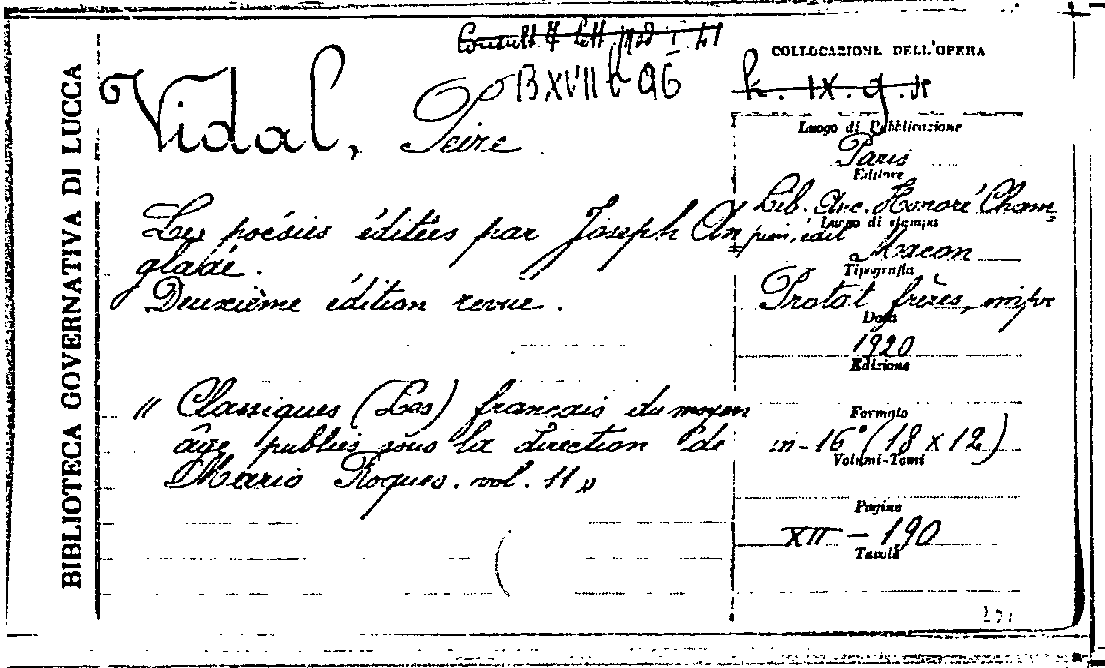 BIBLIOTECA GOVERNATIVA DI LUCCA
COLLOCAZIONE DELL'OPERA
B XVII b 96
Vidal, Peire.
Les poésies éditées par Joseph An
glade.
Deuxième édition revue.
" Classiques (Les) français du moyen
âge publiés sous la direction de
Mario Roques. vol. 11 "
Luogo di Pubblicazione
Paris
Editore
Lib. Anc. Honoré Cham
pion, édit
Luogo di stampa
Macon
Tipografia
Protat frères, impr
Data
1920
Edizione
Formato
in-16° (18 x 12)
Volumi-Tomi
Pagine
XII - 190
Tavole